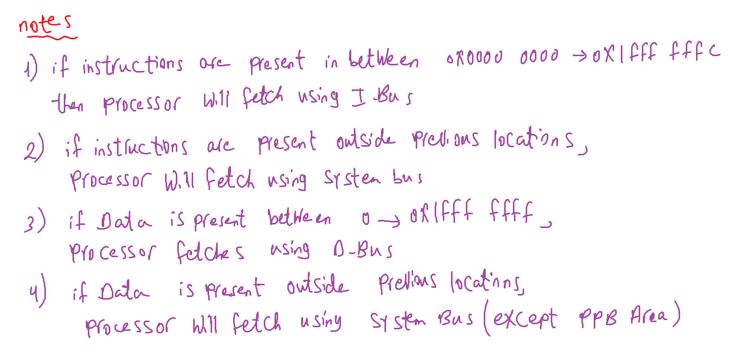 notes
1) if instructions are present in between 0x0000 0000 → 0x1fff fffc
then processor will fetch using I-Bus
2) if instructions are present outside previous locations,
processor will fetch using system bus
3) if Data is present between 0 → 0x1fff ffff,
processor fetches using D-Bus
4) if Data is present outside previous locations,
processor will fetch using system Bus (except PPB Area)